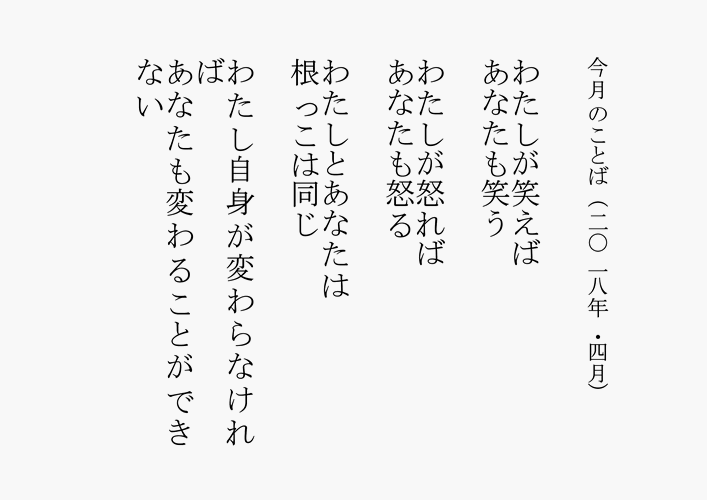 今月のことば（二〇一八年・四月）
わたしが笑えば
あなたも笑う
わたしが怒れば
あなたも怒る
わたしとあなたは
根っこは同じ
わたし自身が変わらなけれ
ば
あなたも変わることができ
ない